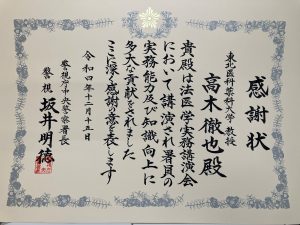 感謝状
東北医科薬科大学 教授
高木徹也殿
貴殿は法医学実務講演会
において講演され署員の
実務能力及び知識向上に
多大な貢献をされました
ここに深く感謝の意を表します
令和四年十二月十五日
警視庁中央警察署長
警視 坂井明徳